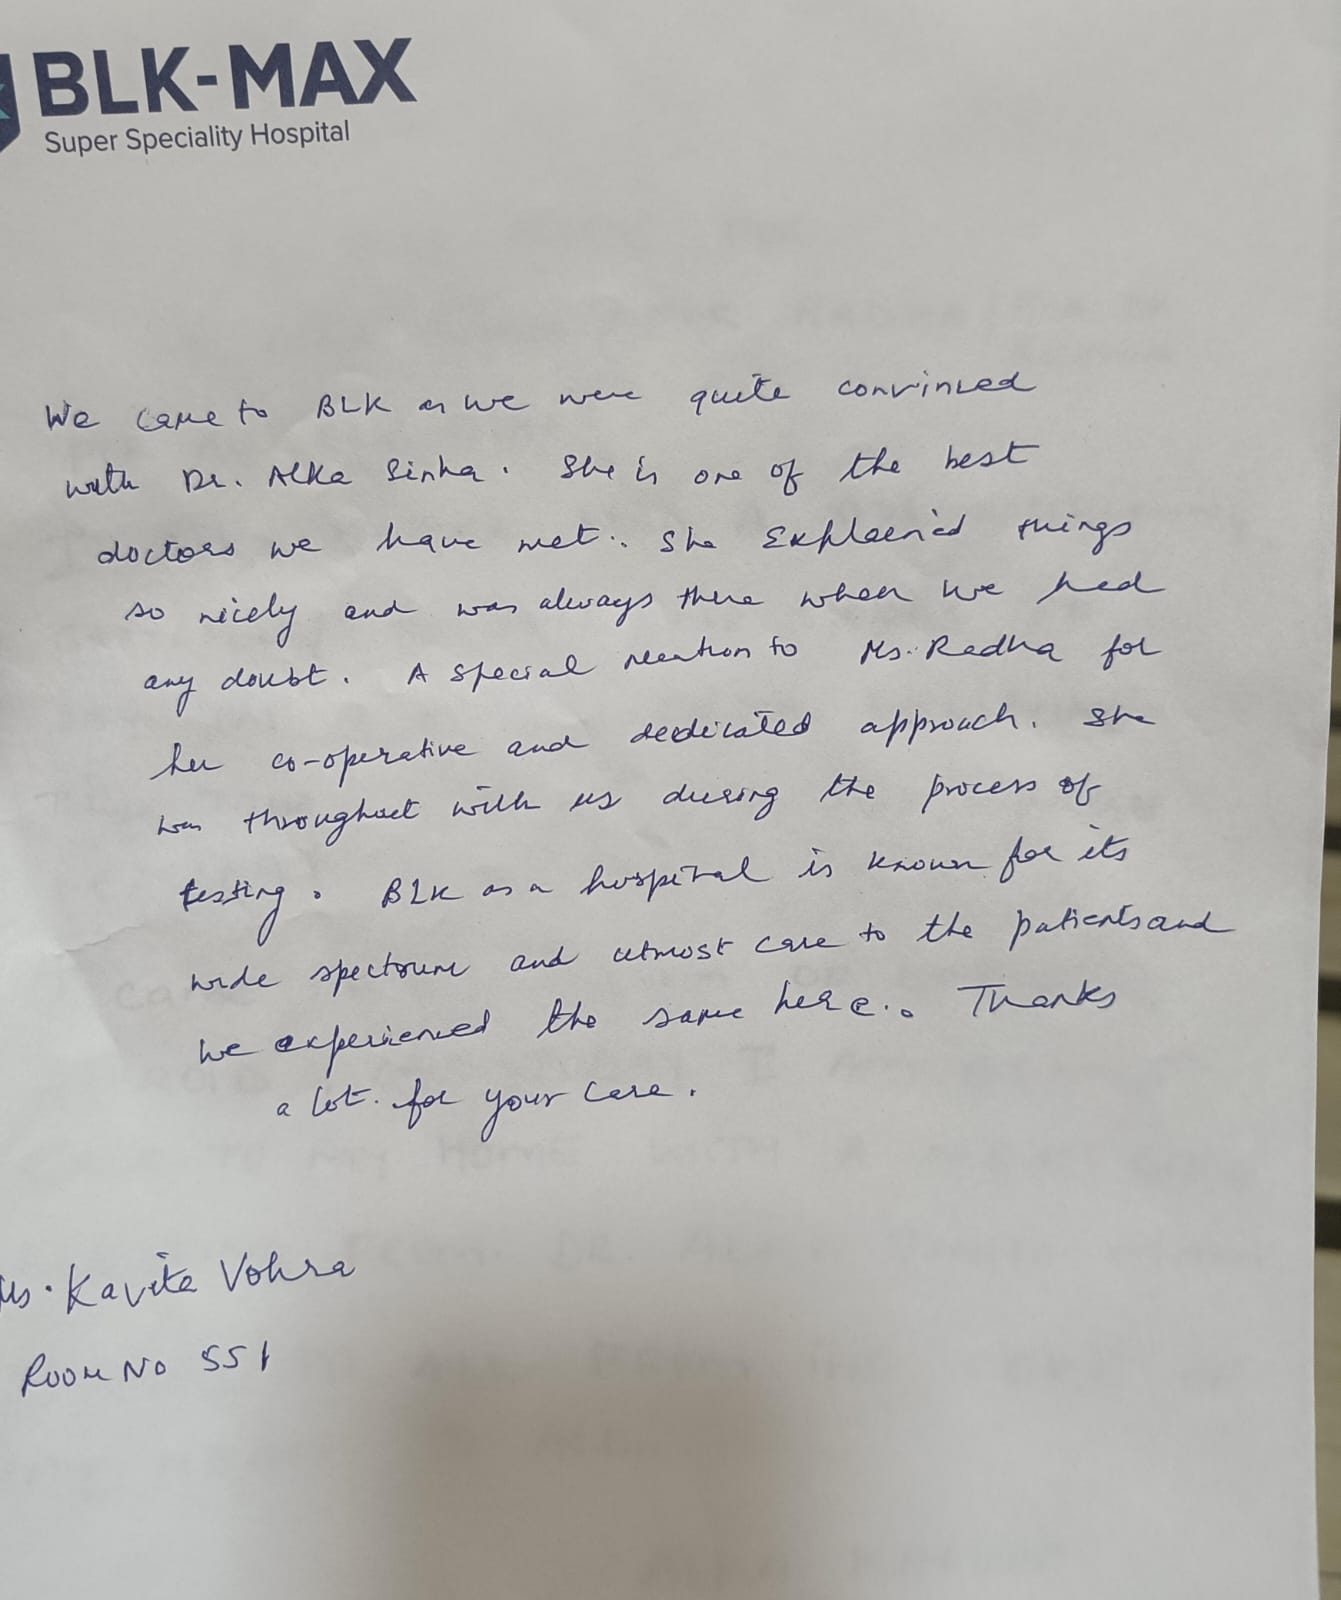 BLK-MAX
Super Speciality Hospital
We came to BLK as we were quite convinced
with Dr. Alka Sinha. She is one of the best
doctors we have met.. She Explained things
so nicely and was always there when we had
any doubt. A special mention to Ms. Radha for
her co-operative and dedicated approach. She
was throughout with us during the process of
testing. BLK as a hospital is known for its
wide spectrum and utmost care to the patients and
we experienced the same here.. Thanks
a lot. for your care.
Ms. Kavita Vohra
Room No 551